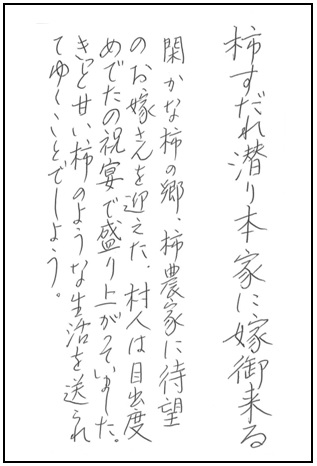 柿すだれ潜り本家に嫁御来る
閑かな柿の郷、柿農家に待望
のお嫁さんを迎えた、村人は目出度
めでたの祝宴で盛り上がっていました。
きっと甘い柿のような生活を送られ
てゆくことでしょう。